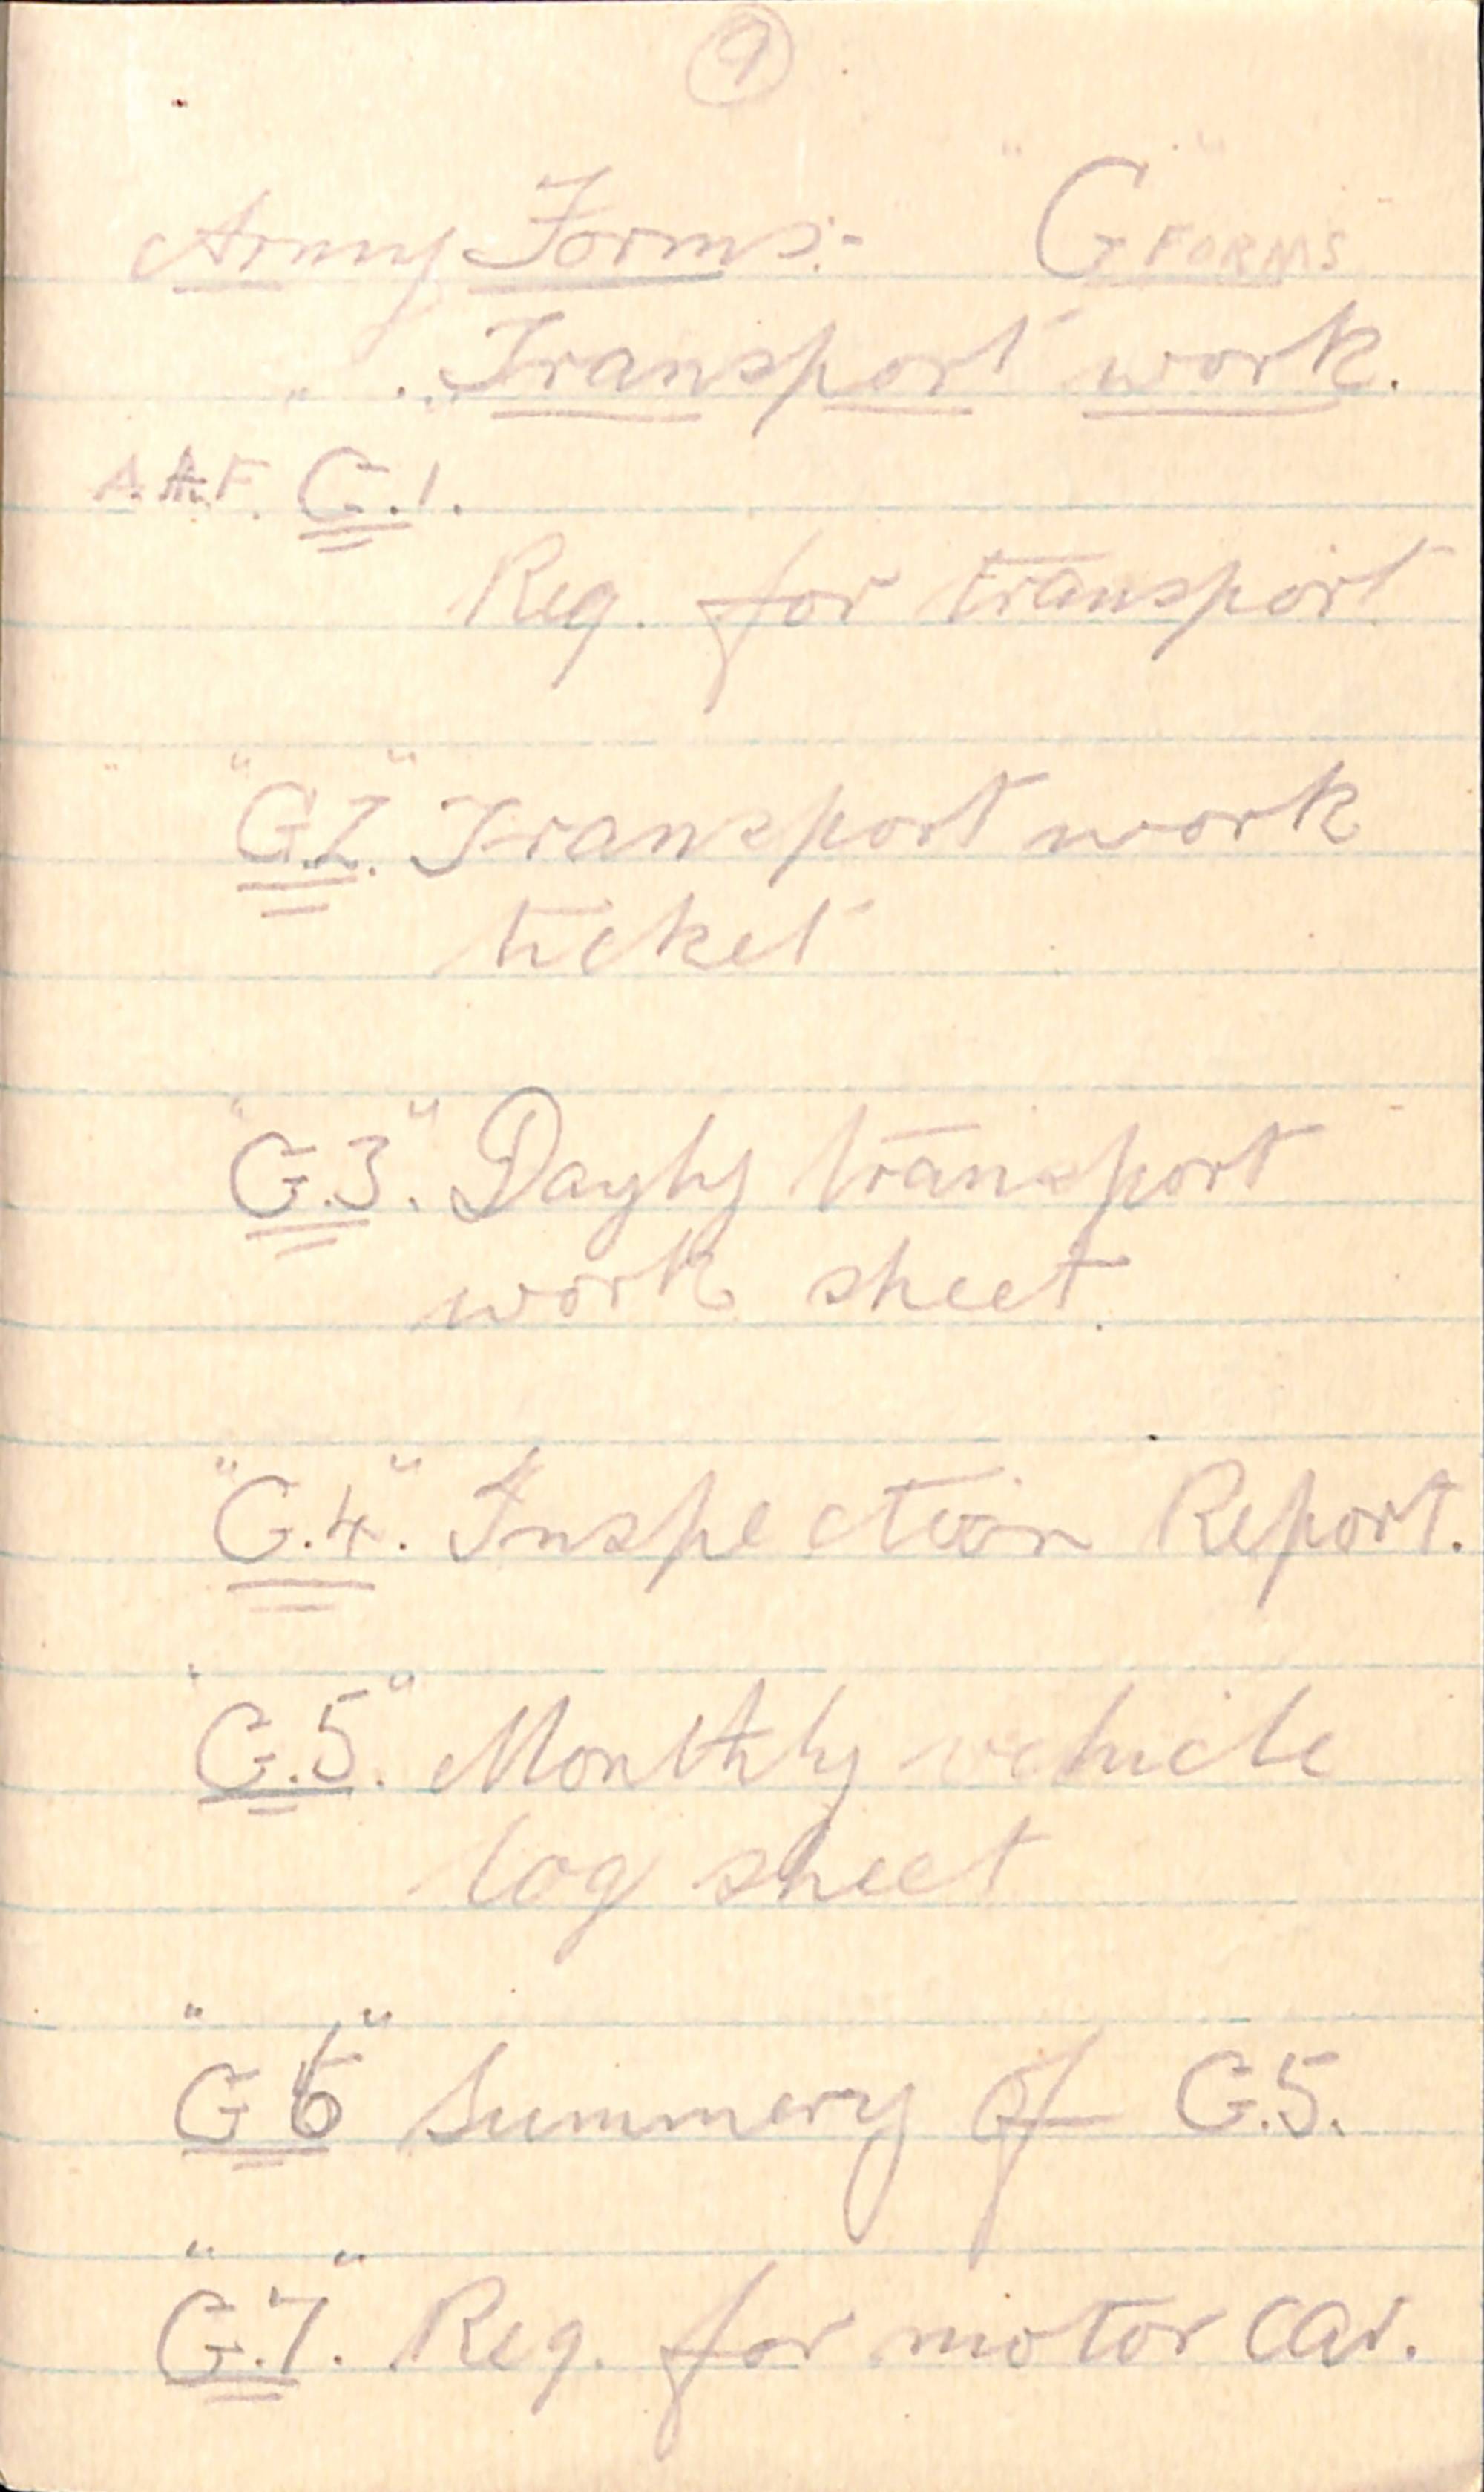 9
Army Forms:- "G" FORMS
" .. Transport work.
A.A.F. G.1.
Req. for transport
"G.2." Transport work
ticket
"G.3." Dayly transport
work sheet.
"G.4." Inspection Report.
"G.5." Monthly vehicle
log sheet
"G 6" Summery of G.5.
"G.7." Req. for motor car.